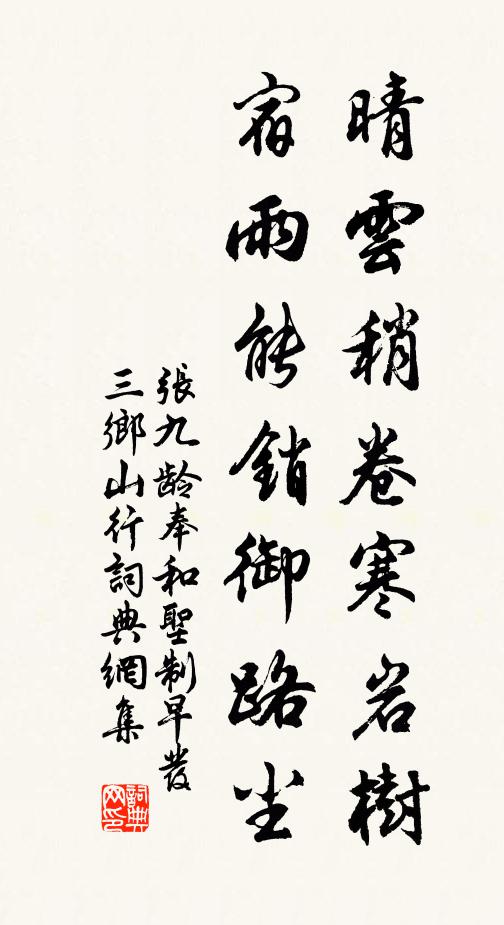 晴雲稍卷寒岩樹
宿雨能銷御路尘
張九龄奉和聖制早發
三鄉山行詞典網集
詞典
网印